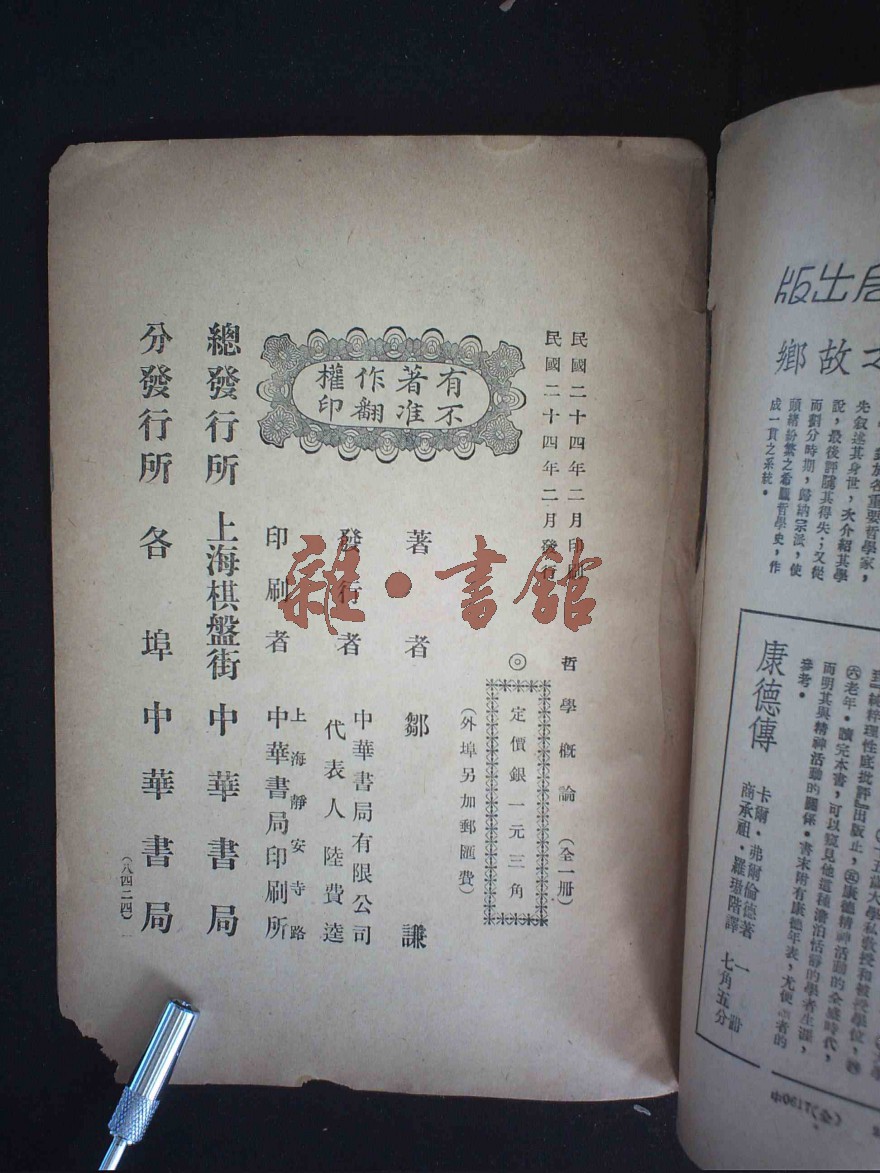 民國二十四年二月印刷
民國二十四年二月發行
哲學概論（全一冊）
◎定價銀一元三角
（外埠另加郵匯費）
有著作權
不准翻印
著者 鄒謙
發行者 中華書局有限公司
代表人 陸費逵
印刷者 上海靜安寺路
中華書局印刷所
總發行所 上海棋盤街 中華書局
分發行所 各埠 中華書局
（八四二四）
雜·書館
局出版
之故鄉
先敘述其身世，次介紹其學
說，最後評騭其得失；又從
而劃分時期，歸納宗派，使
頭緒紛繁之希臘哲學史，作
成一貫之系統。
康德傳
卡爾·弗爾倫德著
商承祖·羅璈階譯
一冊
七角五分
老年。讀完本書，可以窺見他這種澹泊恬靜的學者生涯，
而明其與精神活動的關係。書末附有康德年表，尤便讀者的
參考。